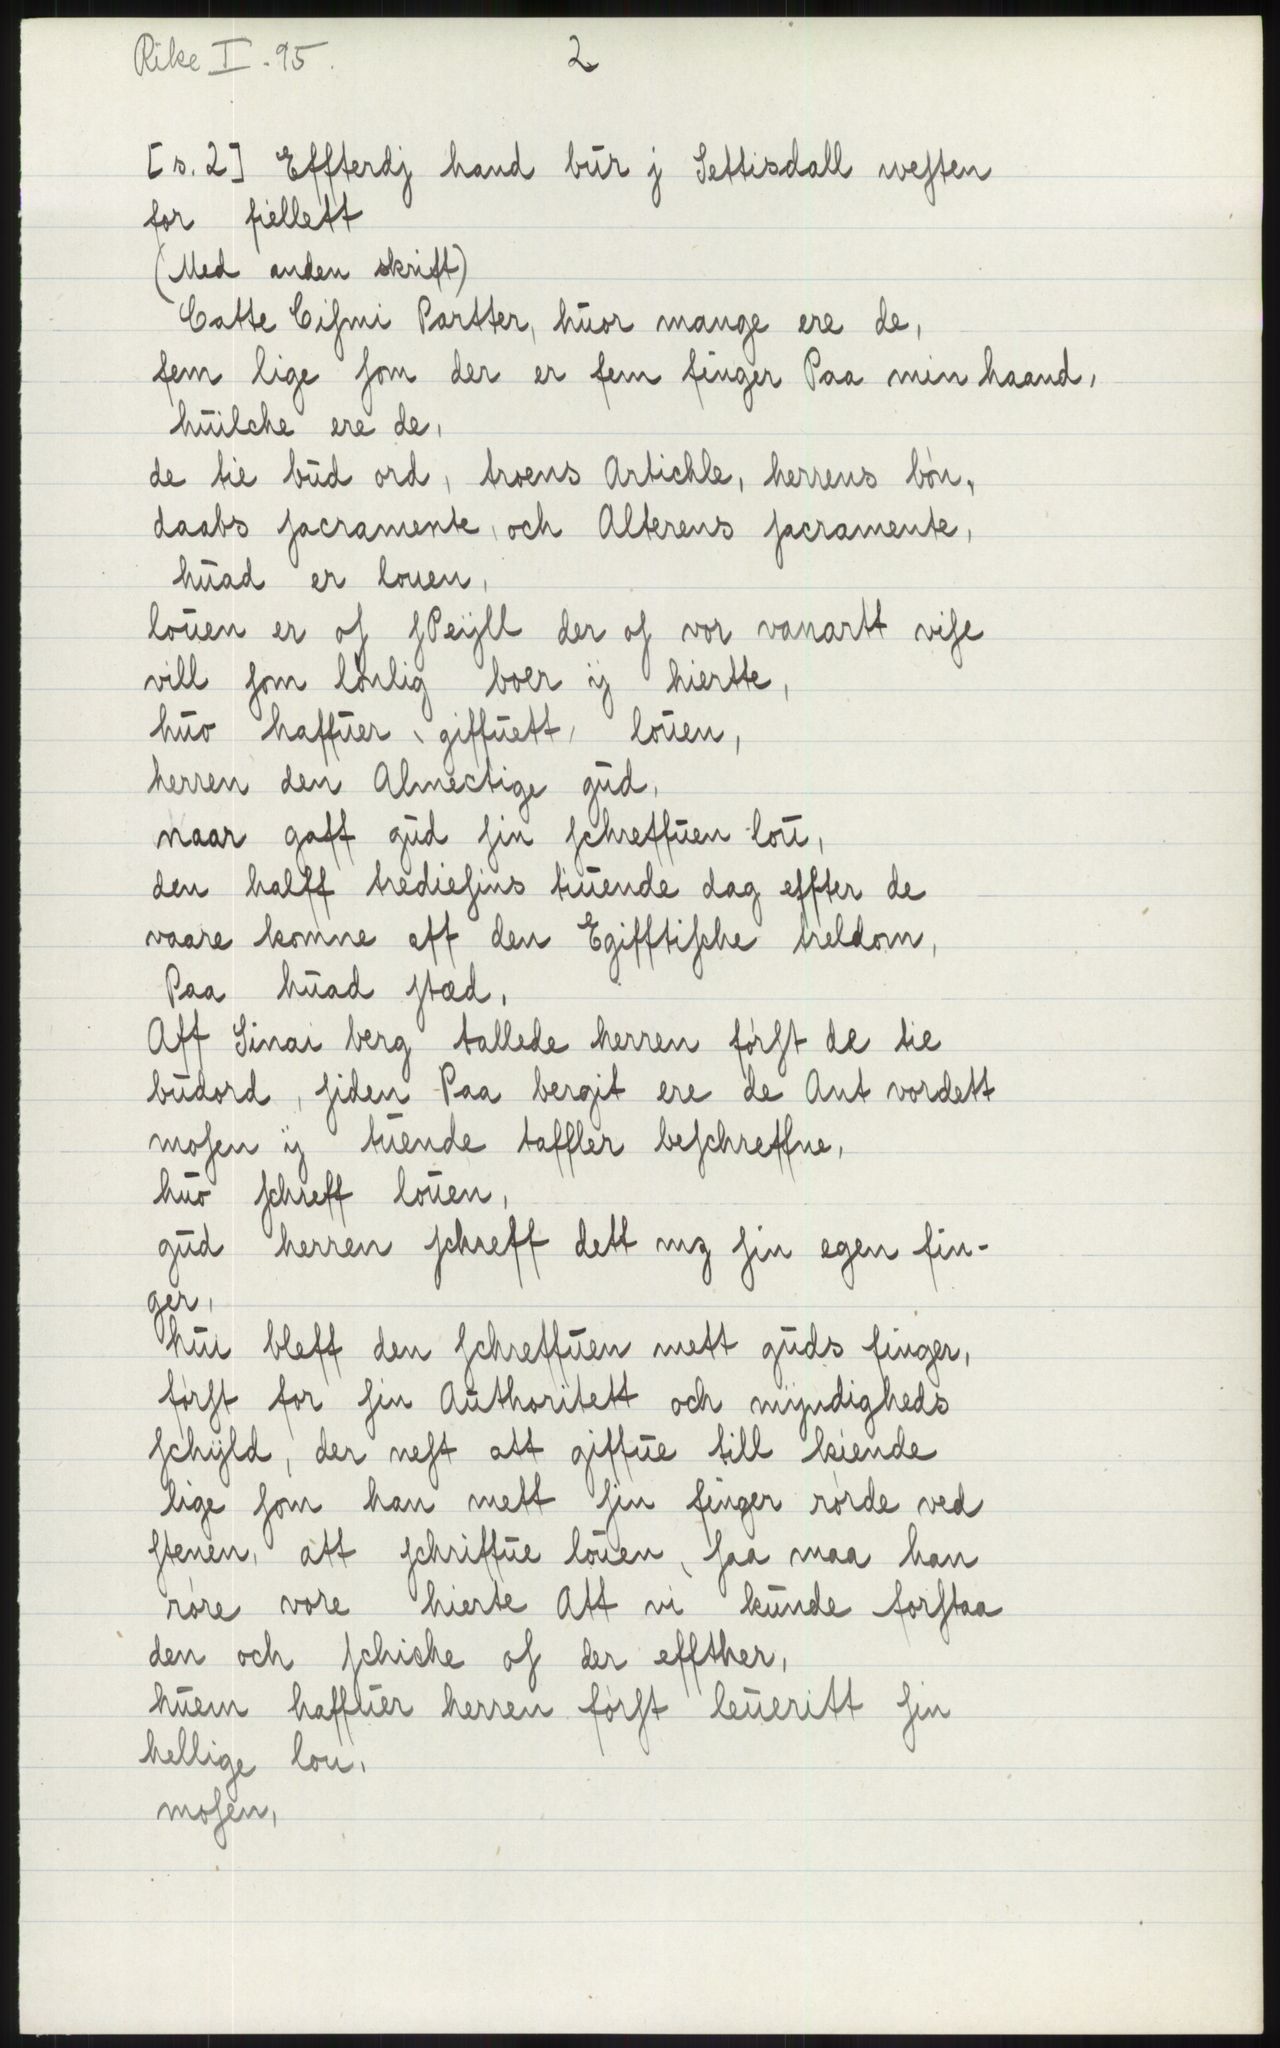 Rike I - 95. 2
[s. 2] Effterdj hand būr j Settisdall weſten
for fiellett
(Med anden skrift)
Catte Ciſmi Partter, hūor mange ere de,
fem lige ſom der er fem finger Paa min haand,
hūilche ere de,
de tie būd ord, troens Artichle, herrens bón,
daabs ſacramente, och Alterens ſacramente,
hūad er louen,
loūen er oſ ſPeijll der oſ vor vanartt viſe
vill ſom lónlig boer ij hiertte,
hūo haffūer, giffūett, loūen,
herren den Almectige gūd,
naar gaff gūd ſin ſchreffūen loū,
den halff tredieſins tiūende dag effter de
vaare komne aff den Egifftiſche treldom,
Paa hūad ſtæd,
Aff Sinai berg tallede herren fórſt de tie
būdord, ſiden Paa bergit ere de Ant vordett
moſen ij tūende taffler beſchreffne,
hūo ſchreff loūen,
gūd herren ſchreff dett mz ſin egen fin-
ger,
hūi bleff den ſchreffūen mett gūds finger,
fórſt for ſin Aūthoritett och mijndigheds
ſchijld, der neſt att giffūe till kiende
lige ſom han mett ſin finger rórde ved
ſtenen, att ſchriffūe loūen, ſaa maa han
róre vore hierte Att vi kūnde forſtaa
den och ſchiche oſ der effther,
hūem haffūer herren fórſt leūeritt ſin
hellige lou,
moſen,